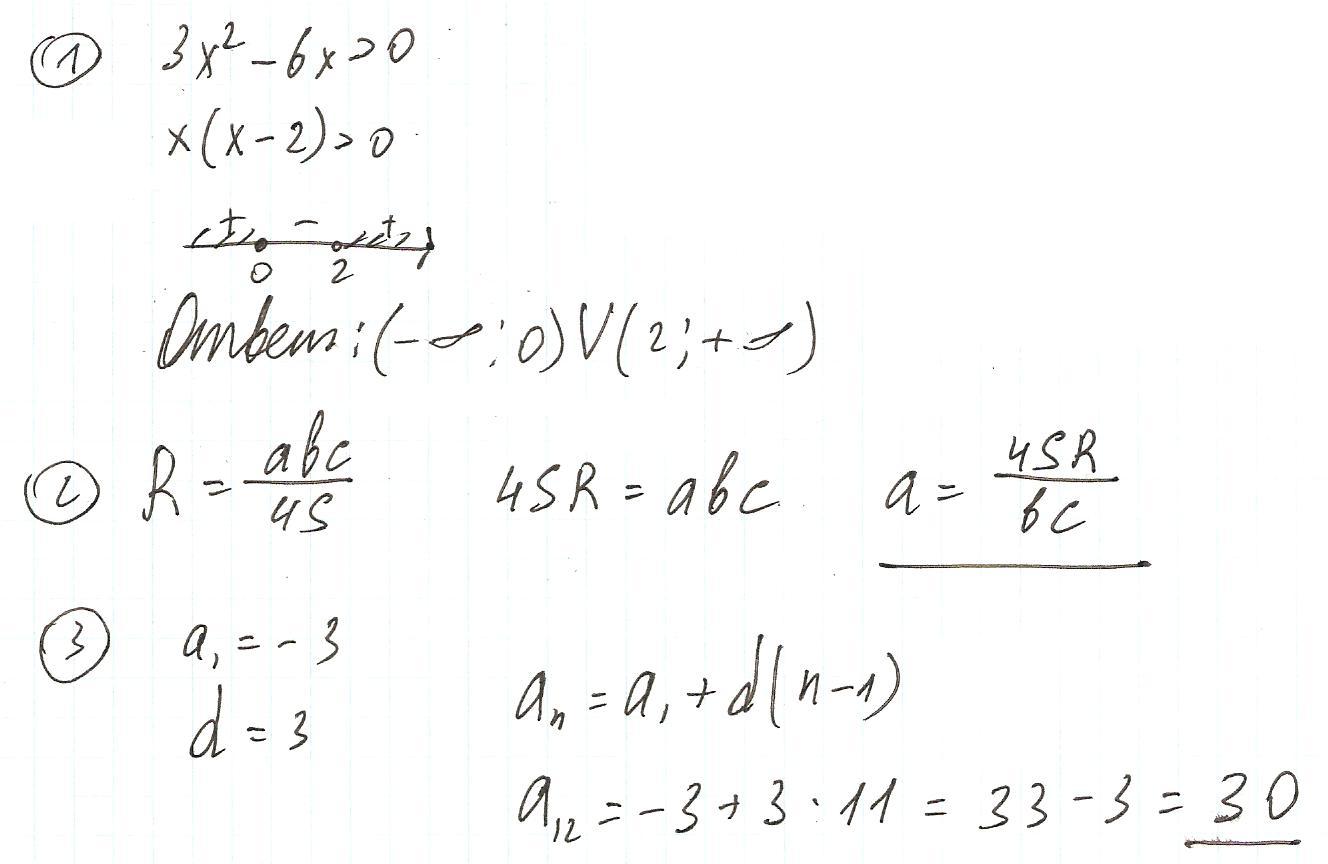 ① 3x² - 6x > 0
x(x - 2) > 0
+ - +
0 2
Ответ: (-∞; 0) ∪ (2; +∞)
② R = abc/4S 4SR = abc a = 4SR/bc
③ a₁ = - 3
d = 3
aₙ = a₁ + d(n-1)
a₁₂ = -3 + 3 · 11 = 33 - 3 = 30